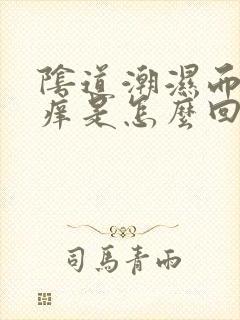 陰道潮濕而
痒是怎麼回
司馬青雨